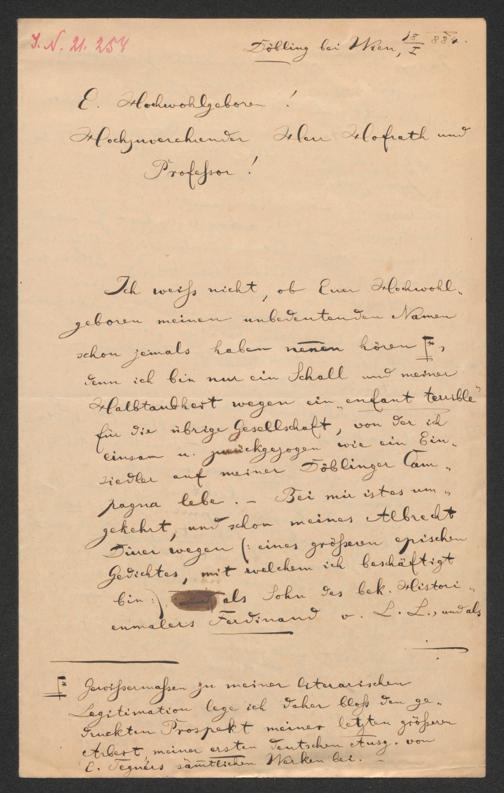 J.N. 21.258
Döbling bei Wien, 18/I 884.
E. Hochwohlgeboren!
Hochzuverehrender Herr Hofrath und
Professor!
Ich weiß nicht, ob Euer Hochwohl-
geboren meinen unbedeutenden Namen
schon jemals haben nennen hören F,
denn ich bin nur ein Schall und meiner
Halbtaubheit wegen ein „enfant terrible"
für die übrige Gesellschaft, von der ich
einsam u. zurückgezogen wie ein Ein-
siedler auf meiner Döblinger Cam-
pagna lebe. – Bei mir ist es um-
gekehrt, und schon meines Albrecht
Dürer wegen (: eines größeren epischen
Gedichtes, mit welchem ich beschäftigt
bin :) als Sohn des bek. Histori-
enmalers Ferdinand v. L. L., und als
F Gewissermassen zu meiner literarischen
Legitimation lege ich daher bloß den ge-
druckten Prospekt meiner letzten größeren
Arbeit, meiner ersten deutschen Ausg. von
E. Tegnérs sämtlichen Werken bei. –